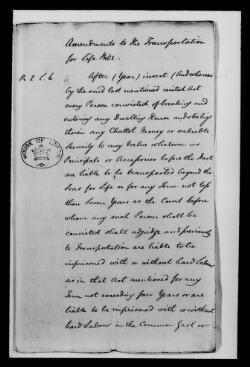 Amendments to the Transportation
for Life Bill.
P. 2 l. 6
After (Year) insert (And whereas
by the said last mentioned recited Act
every Person convicted of breaking and
entering any Dwelling House and stealing
therein any Chattel Money or valuable
Security to any Value whatever as
Principals or Accessories before the Fact
are liable to be transported beyond the
Seas for Life or for any Term not less
than Seven Years as the Court before
whom any such Person shall be
convicted shall adjudge and previously
to Transportation are liable to be
imprisoned with or without hard Labour
as in that Act mentioned for any
Term not exceeding four Years or are
liable to be imprisoned with or without
hard Labour in the Common Gaol or
HOUSE OF LORDS